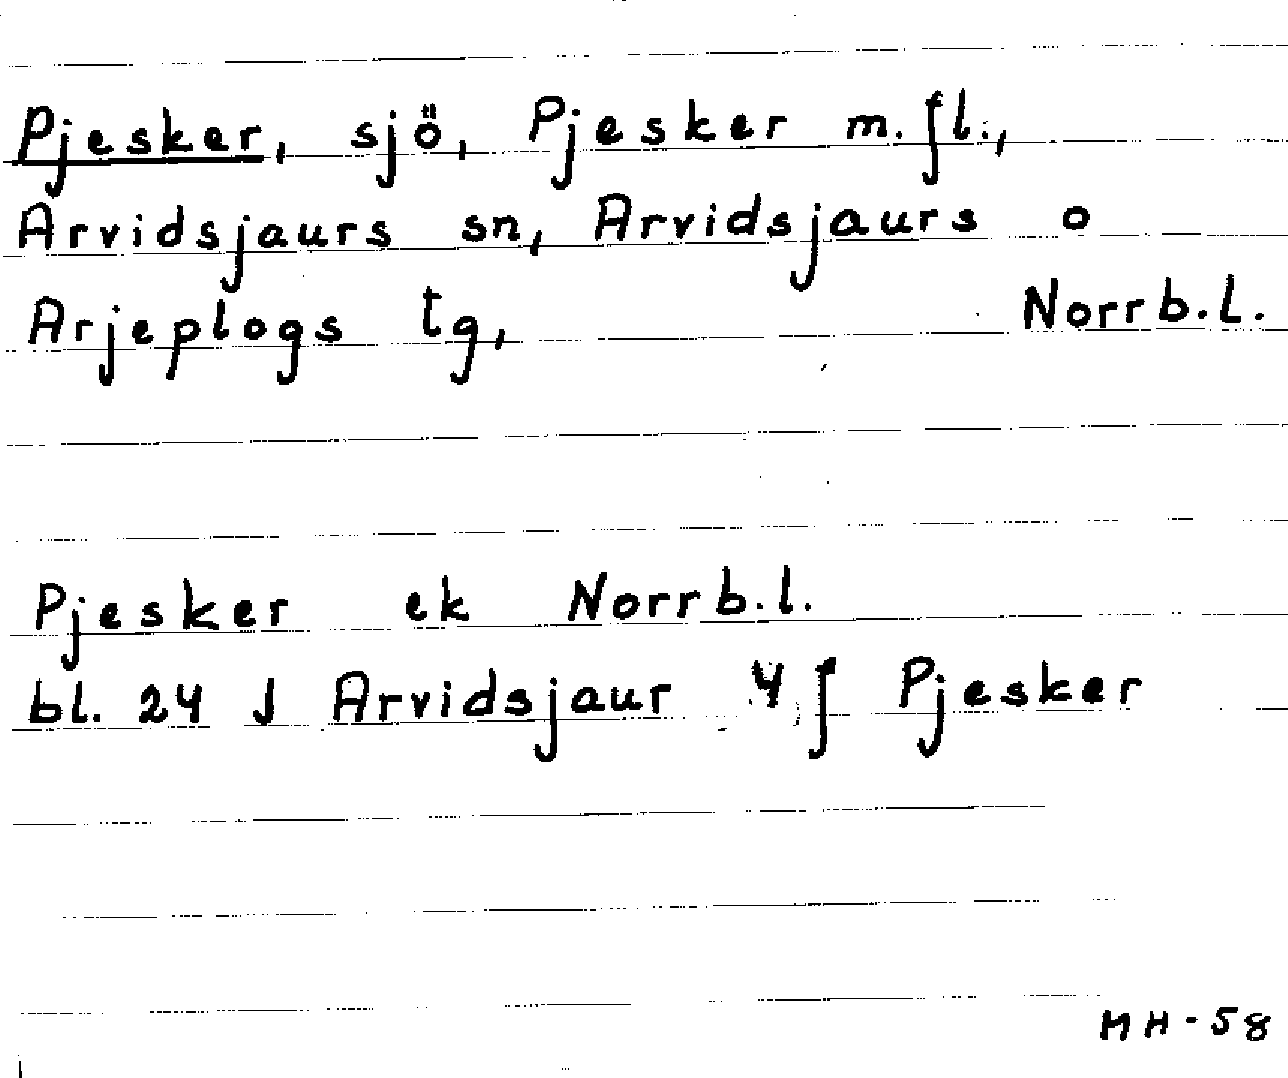 Pjesker, sjö, Pjesker m.fl.,
Arvidsjaurs sn, Arvidsjaurs o
Arjeplogs tg, Norrb.l.
Pjesker ek Norrb.l.
bl. 24 J Arvidsjaur 4 f Pjesker
MH-58